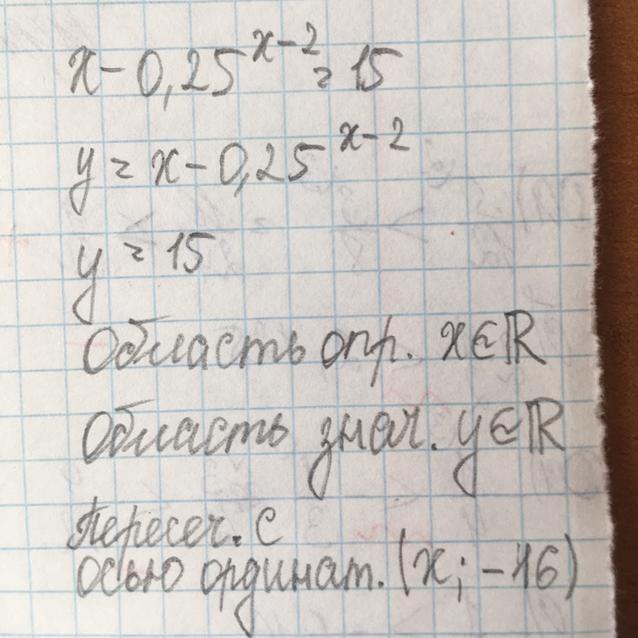 x-0,25^{x-2}=15
y=x-0,25^{x-2}
y=15
Область опр. x∈ℝ
Область знач. y∈ℝ
Пересеч. с
осью ординат. (x; -16)